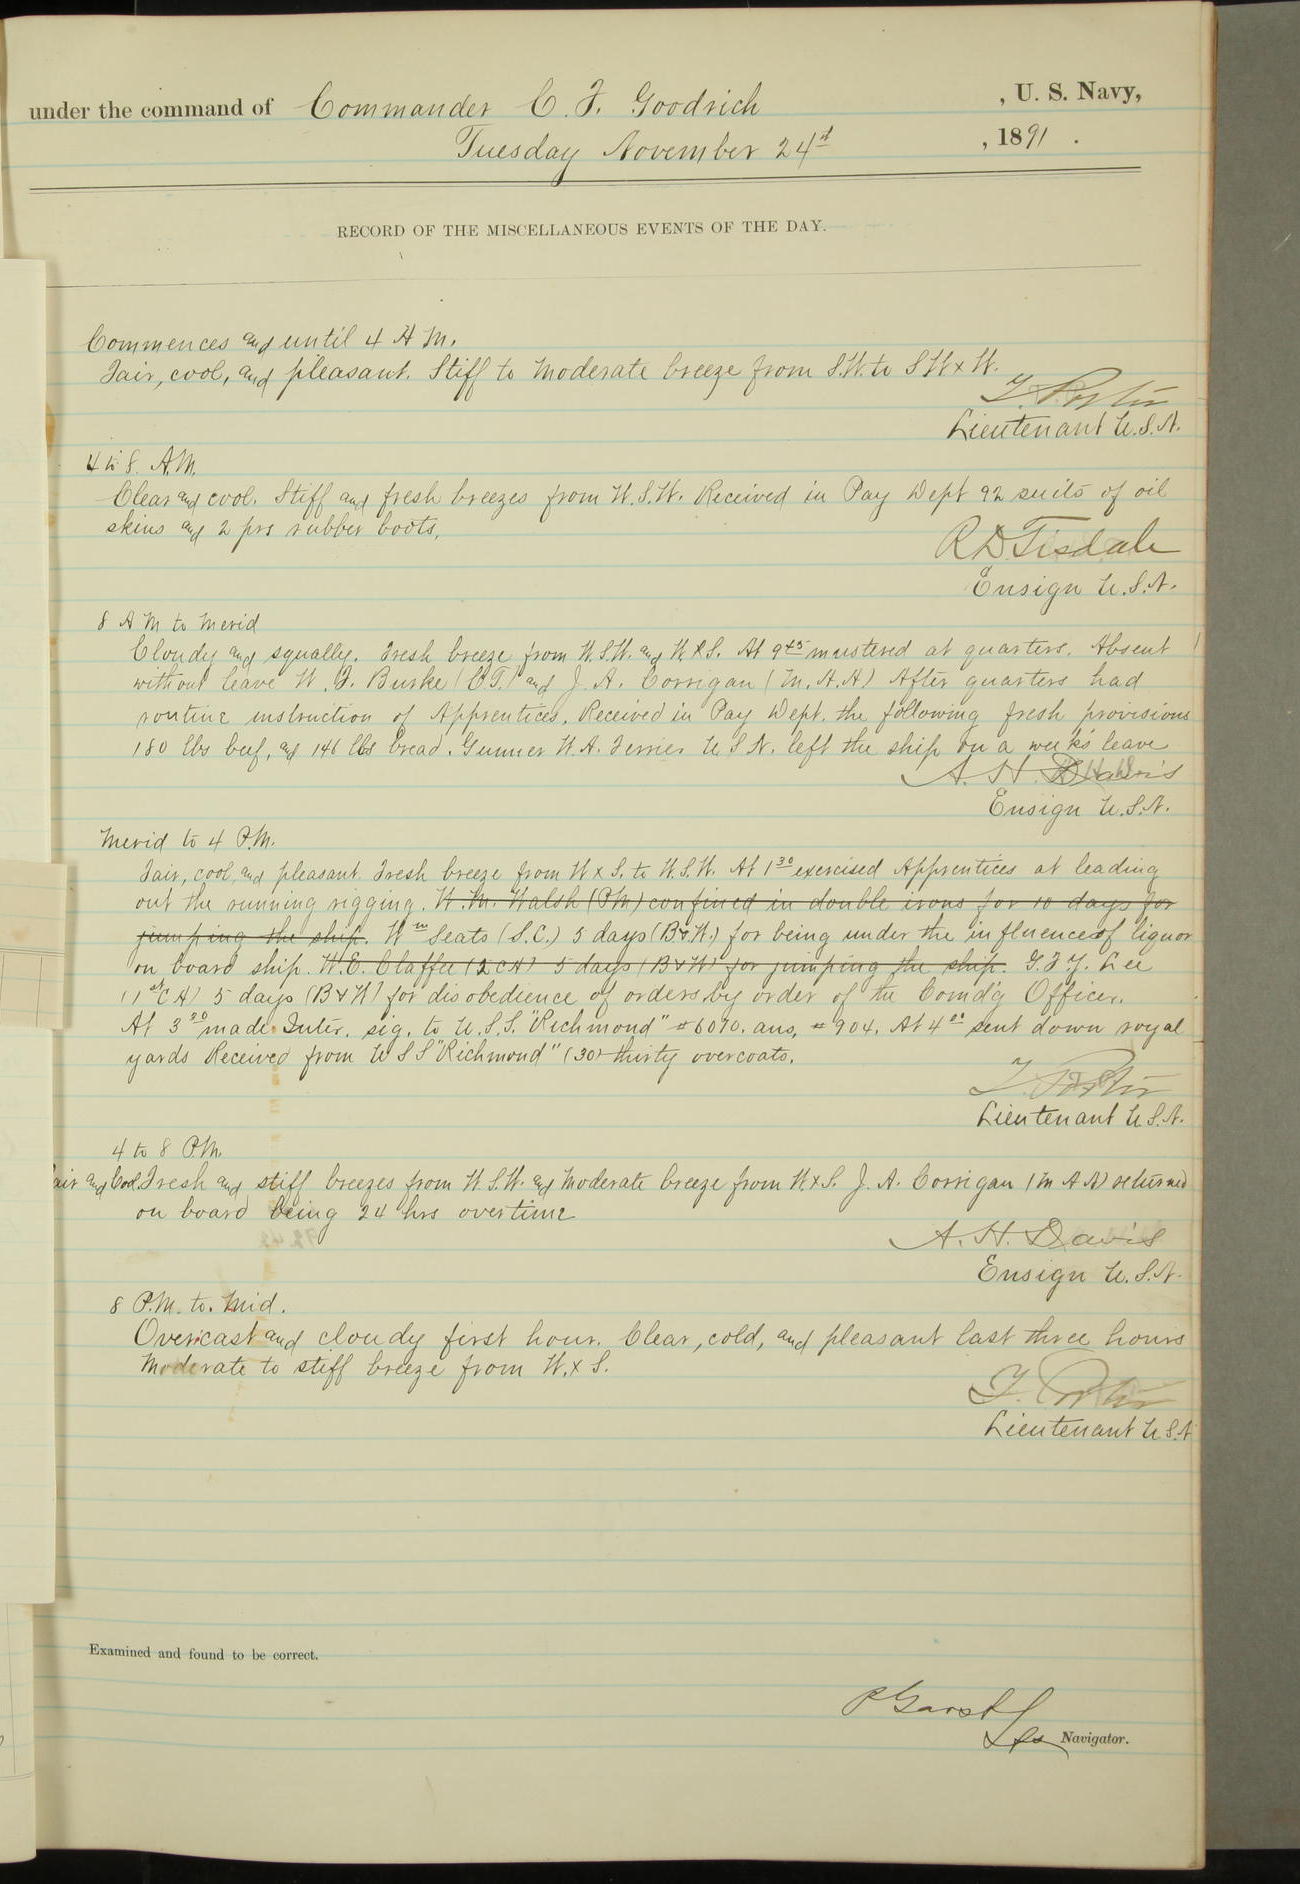 under the command of Commander C. F. Goodrich , U. S. Navy,
Tuesday November 24th , 1891.
RECORD OF THE MISCELLANEOUS EVENTS OF THE DAY.
Commences and until 4 A M.
Fair, cool, and pleasant. Stiff to moderate breeze from S.W. to S W x W.
T. Porter
Lieutenant U.S.N.
4 to 8. A.M.
Clear and cool. Stiff and fresh breezes from W.S.W. Received in Pay Dept 92 suits of oil
skins and 2 prs rubber boots,
R D Tisdale
Ensign U.S.N.
8 A M to Merid
Cloudy and squally. Fresh breeze from W.S.W. and W x S. At 9 45 mustered at quarters. Absent
without leave W. F. Burke (C.T.) and J. A. Corrigan (M.A.A) After quarters had
routine instruction of Apprentices. Received in Pay Dept. the following fresh provisions
180 lbs beef, and 146 lbs bread. Gunner W.A. Ferrier U S N. left the ship on a week's leave
A. H. Davis
Ensign U.S.N.
Merid to 4 P.M.
Fair, cool, and pleasant. Fresh breeze from W x S. to W.S.W. At 1 30 exercised Apprentices at leading
out the running rigging. W. M. Walsh (P.M) confined in double irons for 10 days for
jumping the ship. Wm Seats (S.C.) 5 days (B&W.) for being under the influence of liquor
on board ship. W.E. Claffee (2 C A) 5 days (B&W) for jumping the ship. G. F. Y. Lee
(1st C A) 5 days (B&W) for disobedience of orders by order of the Comd'g Officer.
At 3 30 made Inter. sig. to U.S.S. "Richmond" #6070. ans, #904. At 4 00 sent down royal
yards Received from U S S "Richmond" (30) thirty overcoats.
T. Porter
Lieutenant U.S.N.
4 to 8 P.M.
air and Cool. Fresh and stiff breezes from W.S.W. and Moderate breeze from W.x S. J. A. Corrigan (M A A) returned
on board being 24 hrs overtime
A. H. Davis
Ensign U.S.N.
8 P.M. to. Mid.
Overcast and cloudy first hour. Clear, cold, and pleasant last three hours
Moderate to stiff breeze from W.x S.
T. Porter
Lieutenant U S.N
Examined and found to be correct.
P Garst
Navigator.